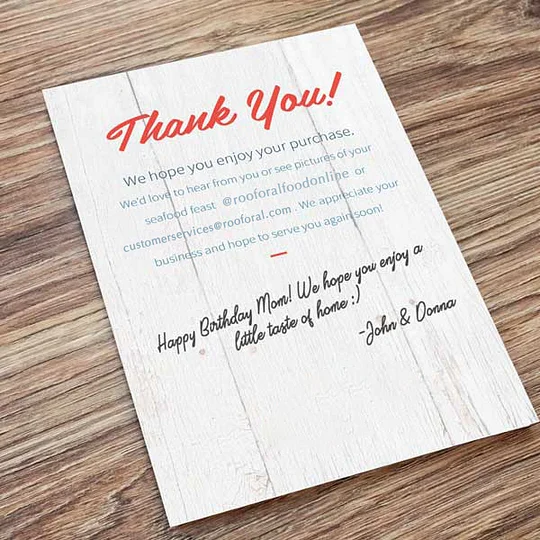 Thank You!
We hope you enjoy your purchase.
We'd love to hear from you or see pictures of your
seafood feast @rooforalfoodonline or
customerservices@rooforal.com. We appreciate your
business and hope to serve you again soon!
Happy Birthday Mom! We hope you enjoy a
little taste of home :)
-John & Donna